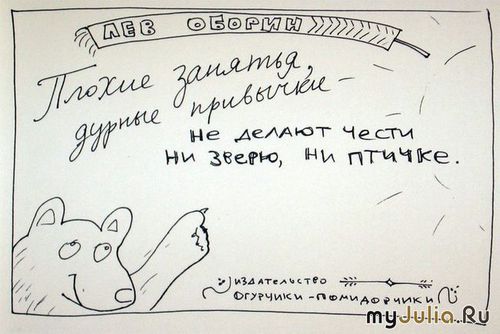 ЛЕВ ОБОРИН
Плохие занятья,
дурные привычки –
не делают чести
ни зверю, ни птичке.
издательство
огурчики-помидорчики
myJulia.Ru